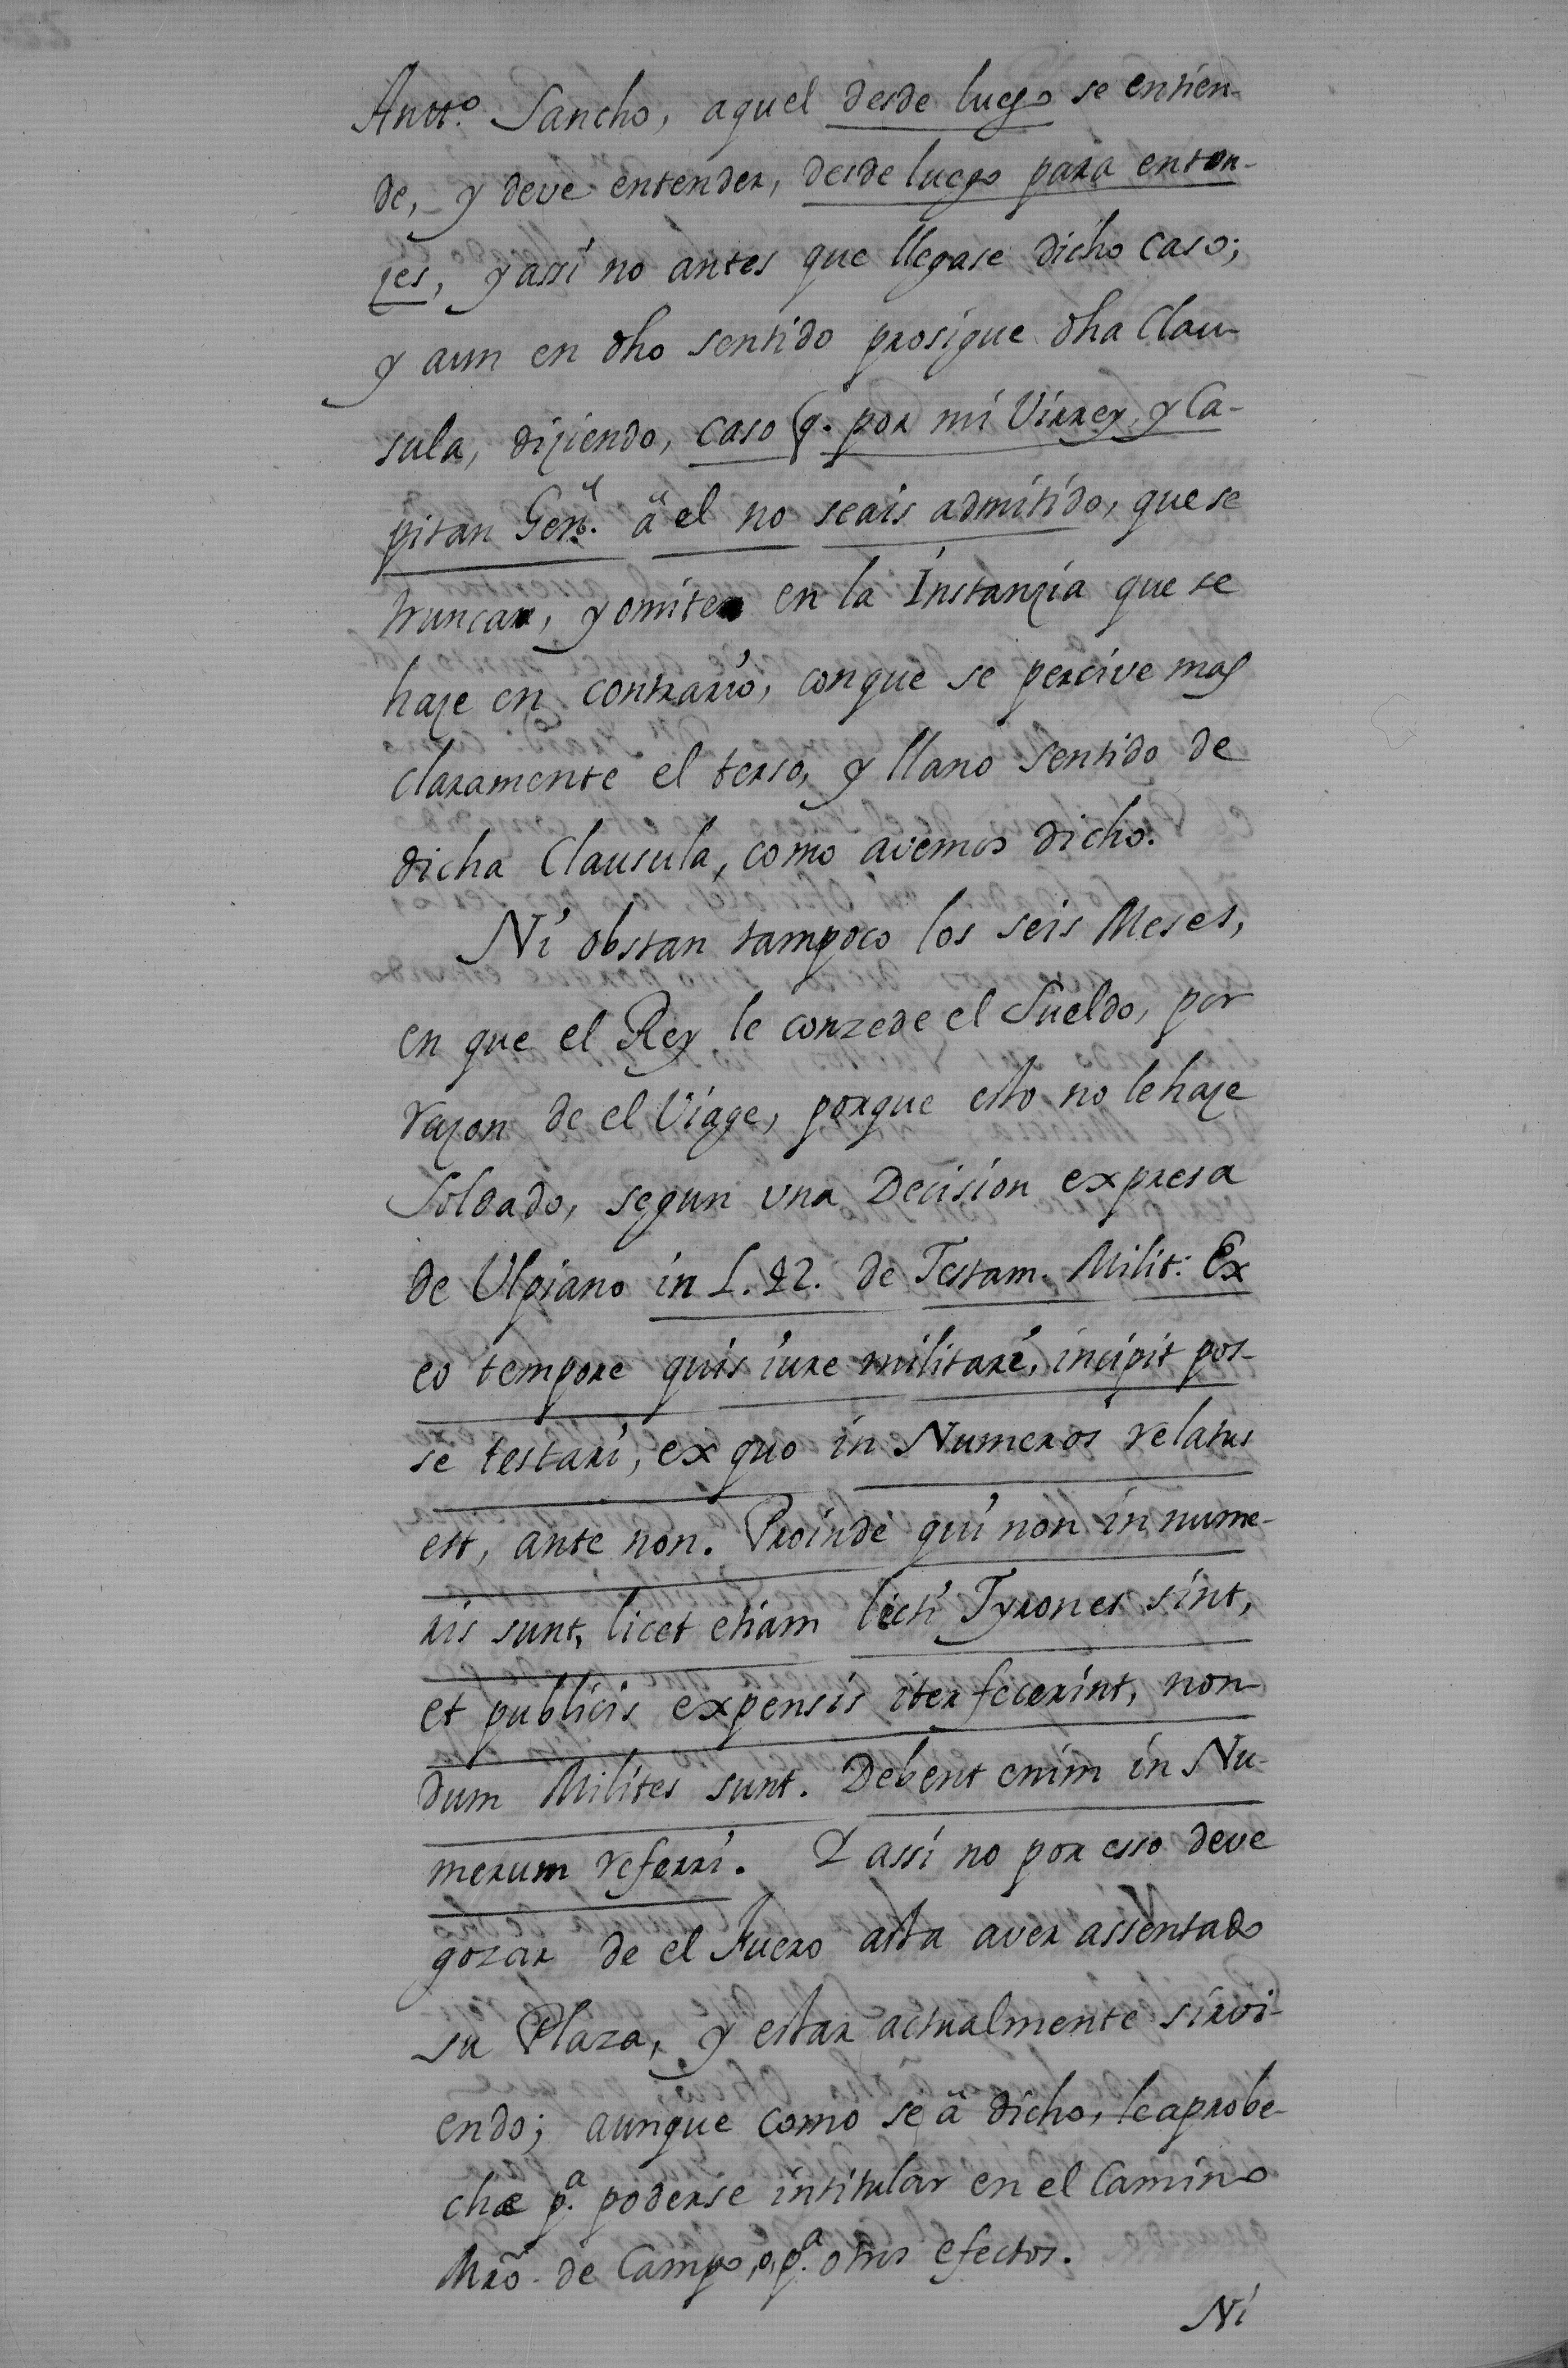 Antt.º Sancho, aquel desde luego se entien-
de, y deve entender, desde luego para enton-
zes, y assi no antes que llegase dicho caso;
y aun en dho sentido prosigue dha Clau-
sula, diziendo, caso q. por mi Virrey, y Ca-
pitan Gen.l â el no seais admitido, que se
truncan, y omiten en la Instanzia que se
haze en contrario, conque se percive mas
claramente el terso, y llano sentido de
dicha Clausula, como avemos dicho.
Ni obstan tampoco los seis Meses,
en que el Rey le conzede el Sueldo, por
razon de el Viage, porque esto no le haze
Soldado, segun vna Decision expresa
de Ulpiano in L. 42. de Testam. Milit: Ex
eo tempore quis iure militari, incipit pos-
se testari, ex quo in Numeros relatus
est, ante non. Proinde qui non in nume-
ris sunt, licet etiam lecti Tyrones sint,
et publicis expensis iter fecerint, non-
dum Milites sunt. Debent enim in Nu-
merum referri. Y assi no por esso deve
gozar de el Fuero asta aver assentado
su Plaza, y estar actualmente sirvi-
endo; aunque como se â dicho, le aprobe-
che p.a poderse intitular en el Camino
Mrõ. de Campo, o, p.a otros efectos.
Ni